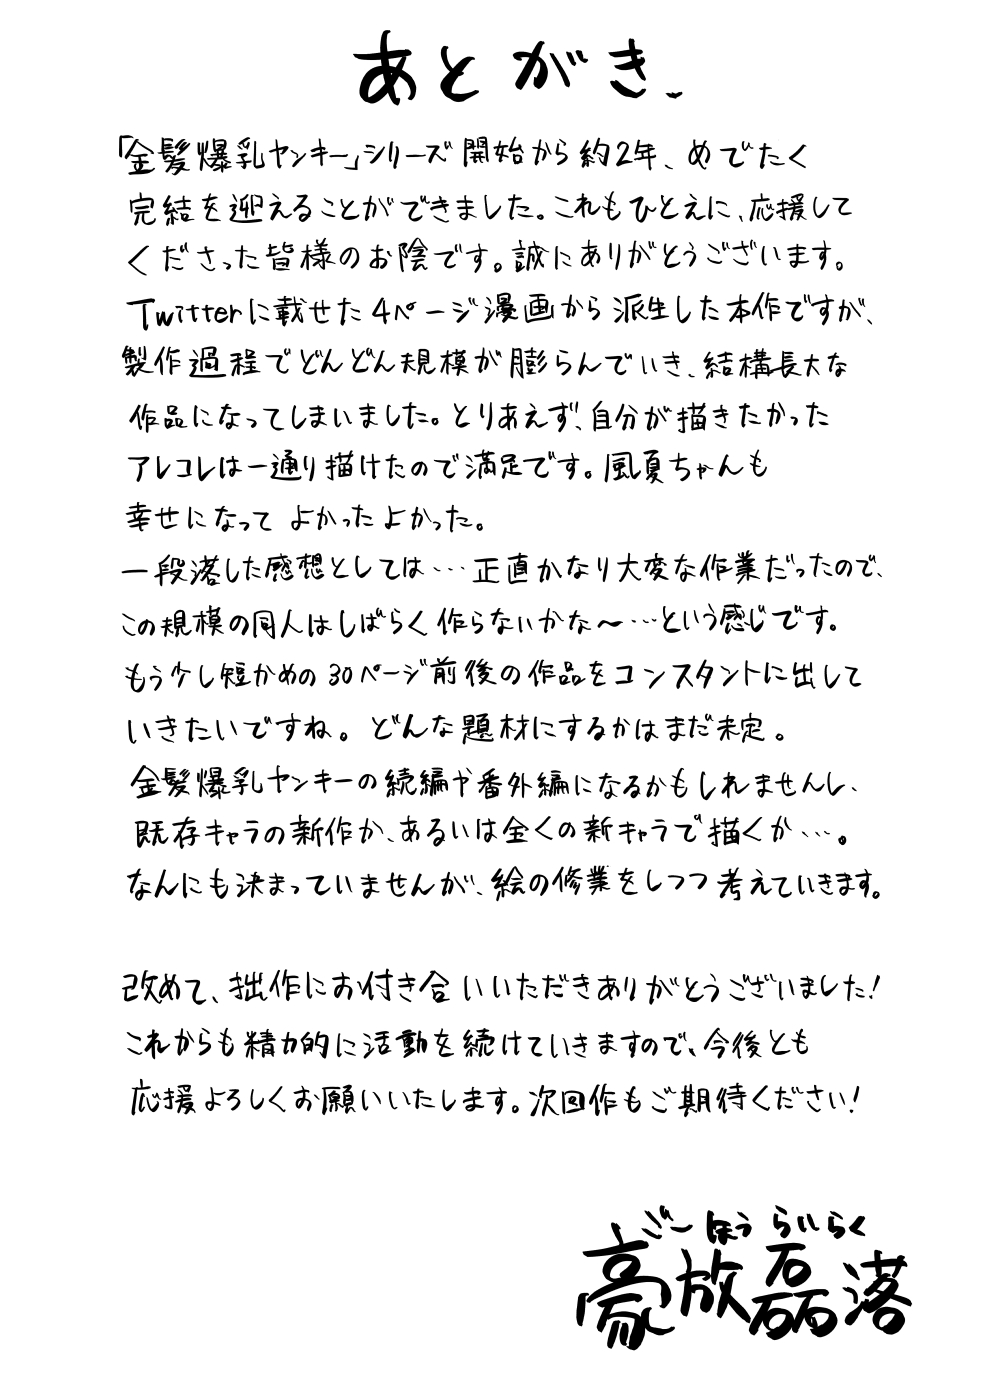 あとがき
「金髪爆乳ヤンキー」シリーズ開始から約2年、めでたく
完結を迎えることができました。これもひとえに、応援して
くださった皆様のお陰です。誠にありがとうございます。
Twitterに載せた4ページ漫画から派生した本作ですが、
製作過程でどんどん規模が膨らんでいき、結構長大な
作品になってしまいました。とりあえず、自分が描きたかった
アレコレは一通り描けたので満足です。風夏ちゃんも
幸せになって よかったよかった。
一段落した感想としては…正直かなり大変な作業だったので、
この規模の同人はしばらく作らないかな～…という感じです。
もう少し短かめの30ページ前後の作品をコンスタントに出して
いきたいですね。どんな題材にするかはまだ未定。
金髪爆乳ヤンキーの続編や番外編になるかもしれませんし、
既存キャラの新作か、あるいは全くの新キャラで描くか…。
なんにも決まっていませんが、絵の修業をしつつ考えていきます。
改めて、拙作にお付き合いいただきありがとうございました!
これからも精力的に活動を続けていきますので、今後とも
応援よろしくお願いいたします。次回作もご期待ください!
ごーほうらいらく
豪放磊落